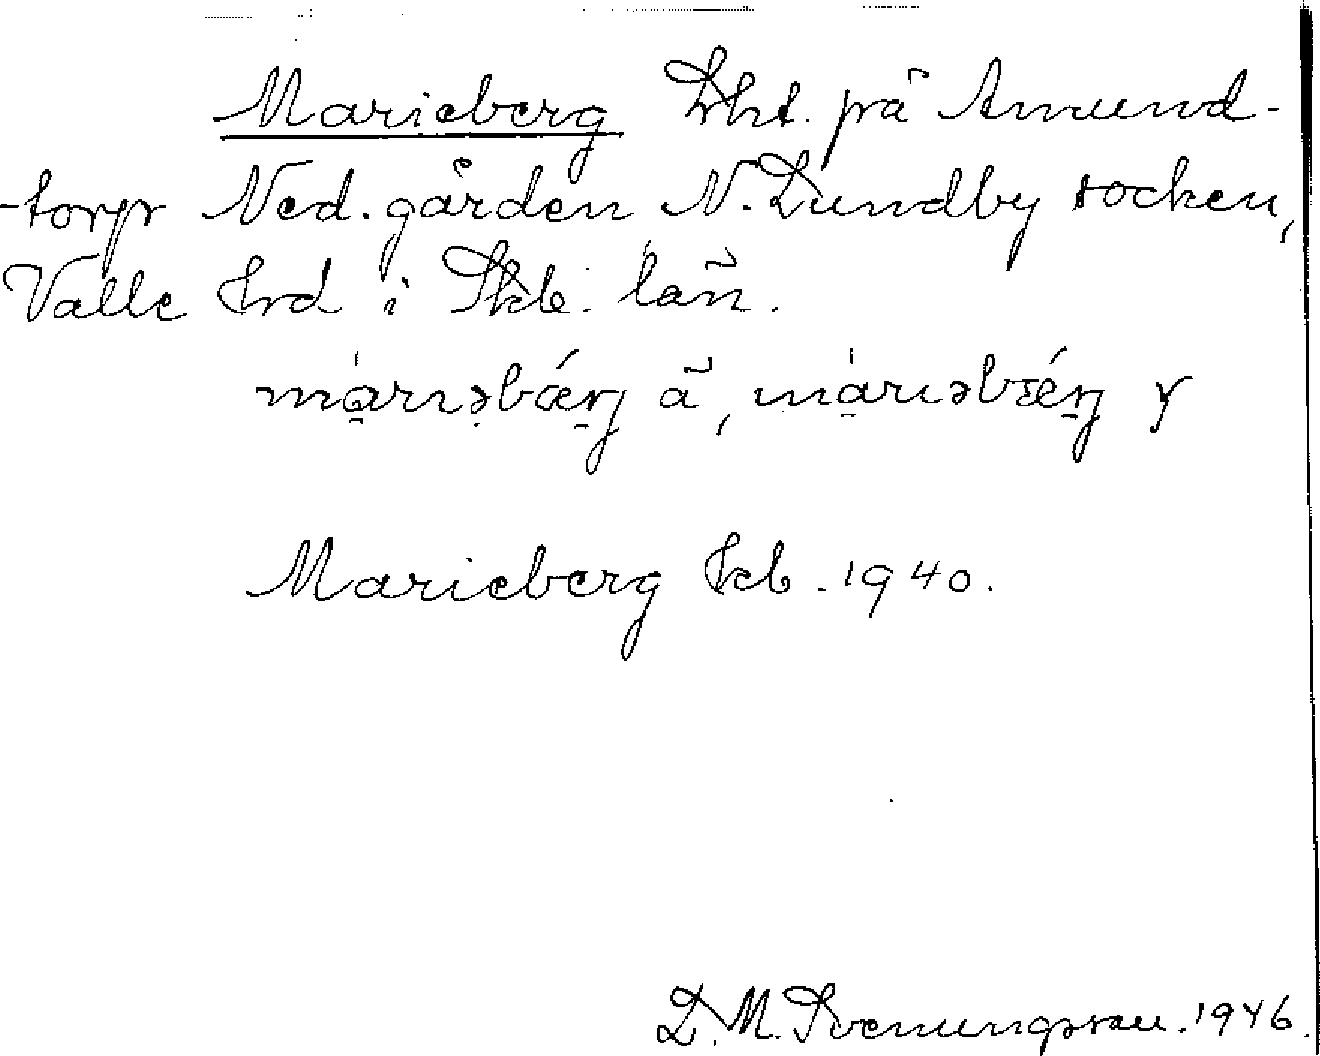 Marieberg Lht. på Amund-
-torp Ned. gården N. Lundby socken,
Valle hrd i Skb. län.
ä, y
Marieberg Kb. 1940.
D. M. Svenungsson. 1946.